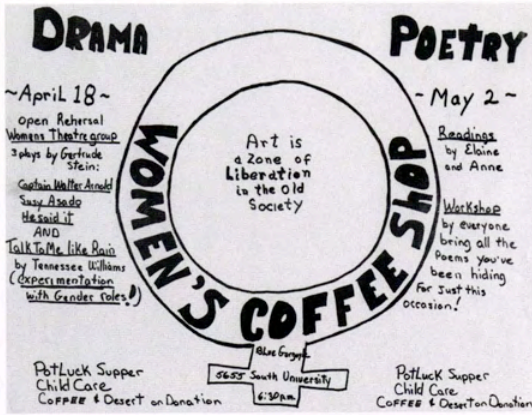 DRAMA
~April 18~
open Rehersal
Womens Theatre group
3 plays by Gertrude
Stein:
Captain Walter Arnold
Susy Asado
He said it
AND
Talk To Me like Rain
by Tennessee Williams
(experimentation
with Gender roles!)
PotLuck Supper
Child Care
COFFEE & Desert on Donation
WOMEN'S COFFEE Shop
Art is
a Zone of
Liberation
in the Old
Society
Blue Gargoyle
5655 South University
6:30 p.m.
POETRY
~ May 2 ~
Readings
by Elaine
and Anne
Workshop
by everyone
bring all the
Poems you've
been hiding
For Just this
occasion!
PotLuck Supper
Child Care
COFFEE & Desert on Donation